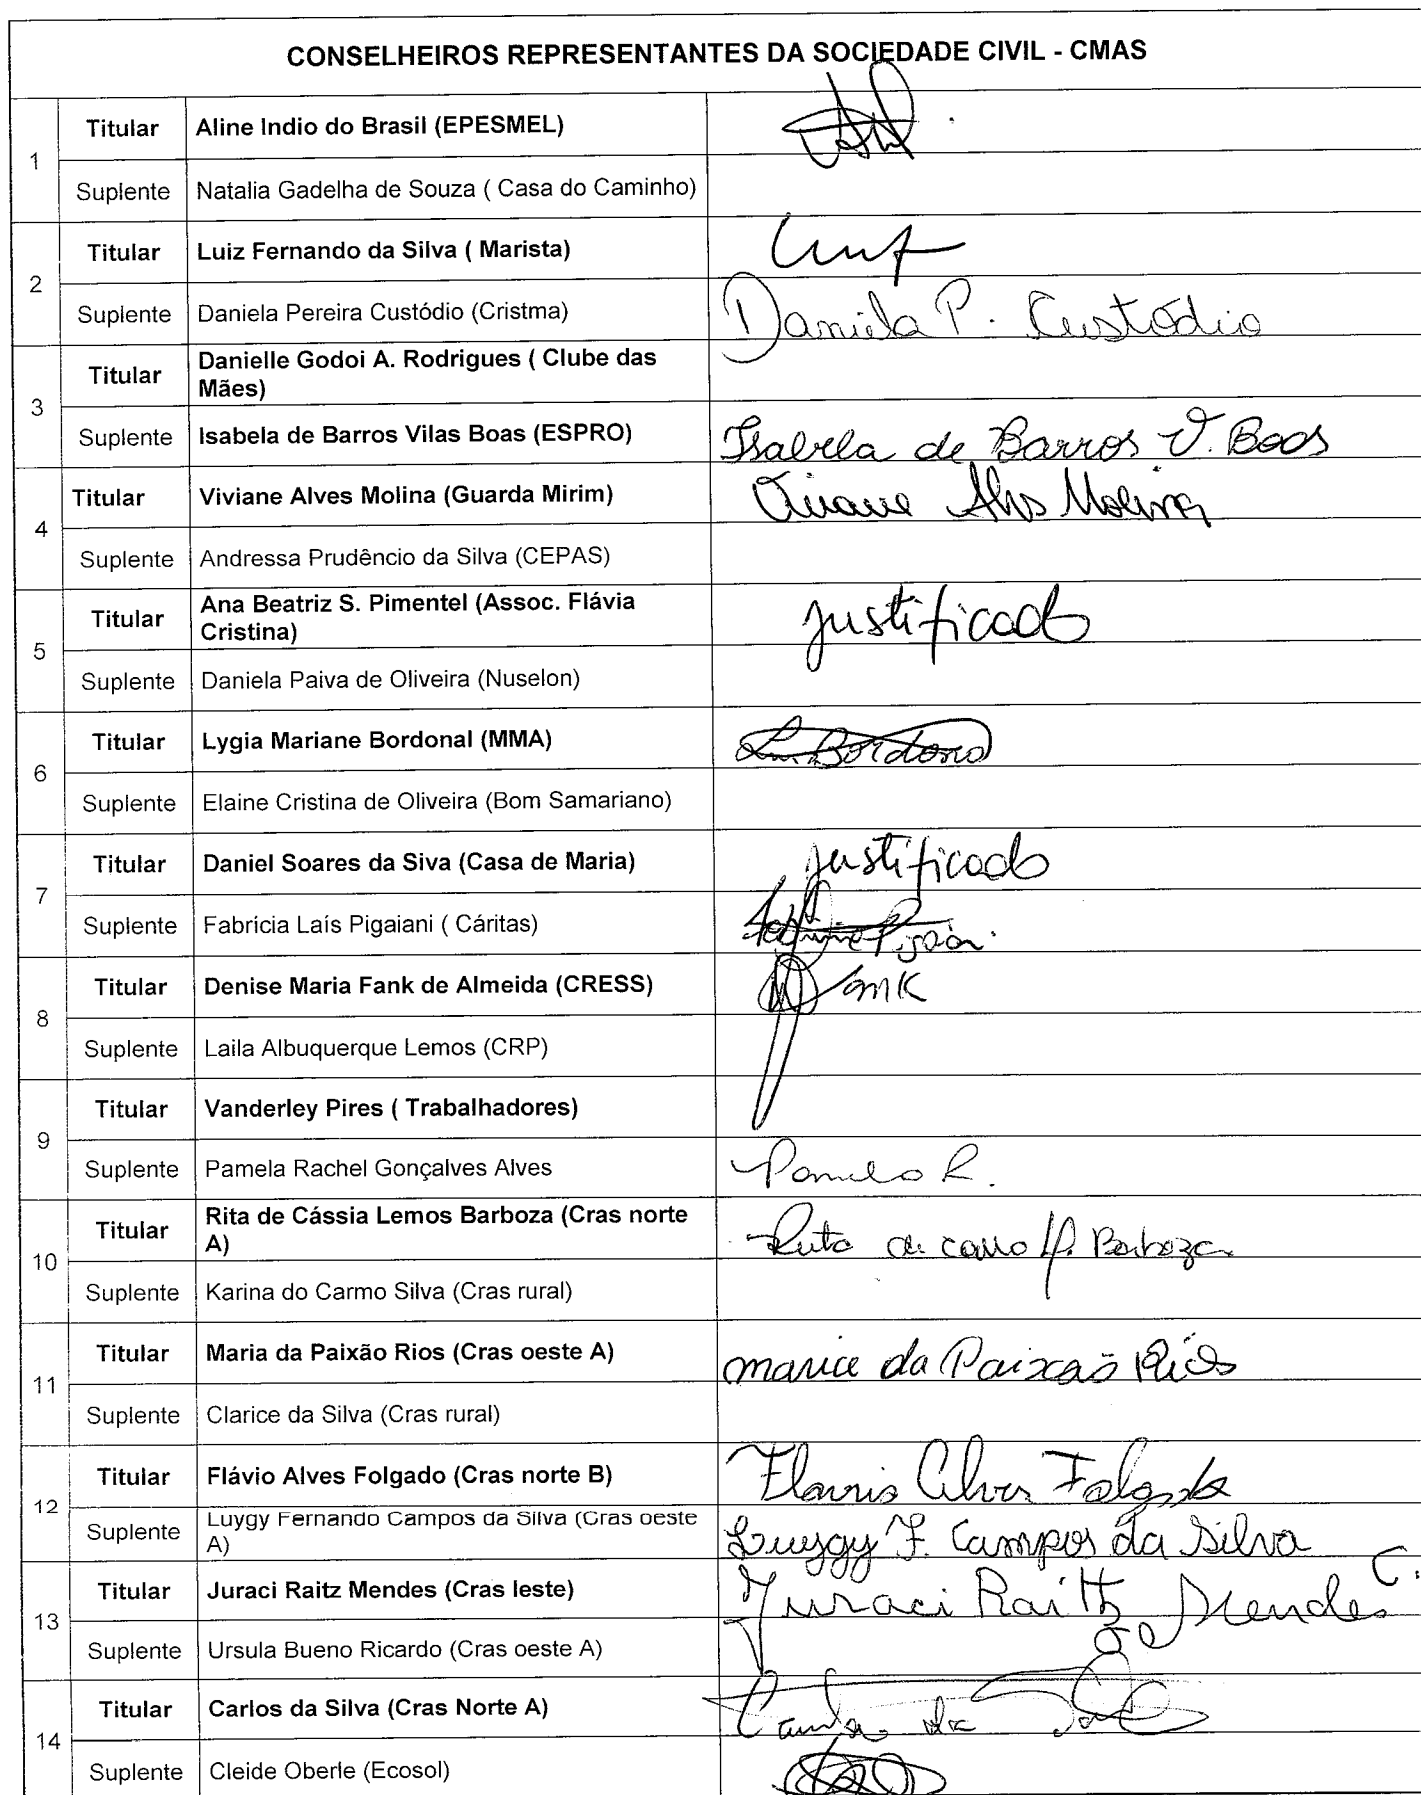 CONSELHEIROS REPRESENTANTES DA SOCIEDADE CIVIL - CMAS
1
Titular Aline Indio do Brasil (EPESMEL)
Suplente Natalia Gadelha de Souza ( Casa do Caminho)
2
Titular Luiz Fernando da Silva ( Marista)
Suplente Daniela Pereira Custódio (Cristma) Daniela P. Custódio
3
Titular Danielle Godoi A. Rodrigues ( Clube das
Mães)
Suplente Isabela de Barros Vilas Boas (ESPRO) Isabela de Barros V. Boas
4
Titular Viviane Alves Molina (Guarda Mirim) Viviane Alves Molina
Suplente Andressa Prudêncio da Silva (CEPAS)
5
Titular Ana Beatriz S. Pimentel (Assoc. Flávia
Cristina) justificado
Suplente Daniela Paiva de Oliveira (Nuselon)
6
Titular Lygia Mariane Bordonal (MMA)
Suplente Elaine Cristina de Oliveira (Bom Samariano)
7
Titular Daniel Soares da Siva (Casa de Maria) justificado
Suplente Fabrícia Laís Pigaiani ( Cáritas)
8
Titular Denise Maria Fank de Almeida (CRESS)
Suplente Laila Albuquerque Lemos (CRP)
9
Titular Vanderley Pires ( Trabalhadores)
Suplente Pamela Rachel Gonçalves Alves Pamela R.
10
Titular Rita de Cássia Lemos Barboza (Cras norte
A)
Suplente Karina do Carmo Silva (Cras rural)
11
Titular Maria da Paixão Rios (Cras oeste A) maria da Paixão Rios
Suplente Clarice da Silva (Cras rural)
12
Titular Flávio Alves Folgado (Cras norte B) Flavio Alves Folgado
Suplente Luygy Fernando Campos da Silva (Cras oeste
A) Luygy F. Campos da Silva
13
Titular Juraci Raitz Mendes (Cras leste) Juraci Raitz Mendes
Suplente Ursula Bueno Ricardo (Cras oeste A)
14
Titular Carlos da Silva (Cras Norte A)
Suplente Cleide Oberle (Ecosol)